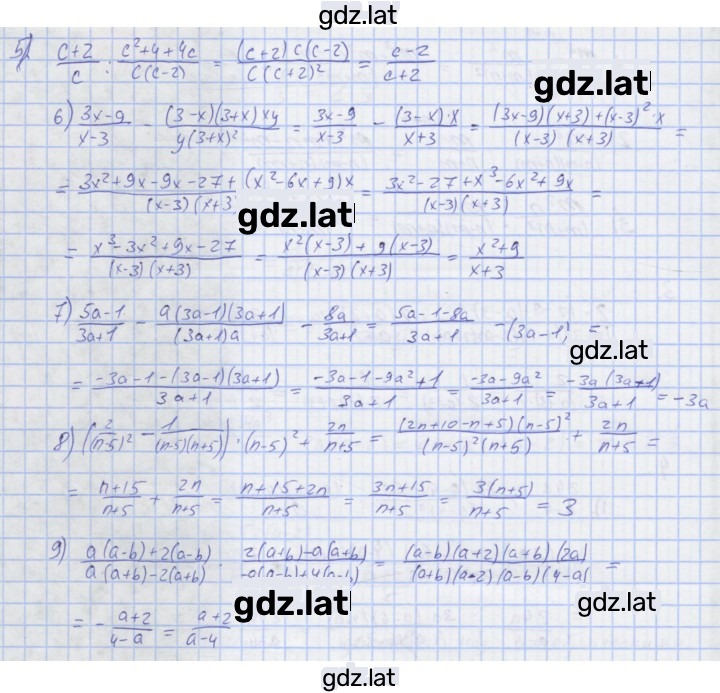 gdz.lat
5) (c+2)/c : (c²+4+4c)/(c(c-2)) = ((c+2)c(c-2))/(c(c+2)²) = (c-2)/(c+2)
gdz.lat
6) (3x-9)/(x-3) - ((3-x)(3+x)xy)/(y(3+x)²) = (3x-9)/(x-3) - ((3-x)·x)/(x+3) = ((3x-9)(x+3)+(x-3)²·x)/((x-3)(x+3)) =
= (3x²+9x-9x-27+(x²-6x+9)x)/((x-3)(x+3)) = (3x²-27+x³-6x²+9x)/((x-3)(x+3)) =
gdz.lat
= (x³-3x²+9x-27)/((x-3)(x+3)) = (x²(x-3)+9(x-3))/((x-3)(x+3)) = (x²+9)/(x+3)
7) (5a-1)/(3a+1) - (a(3a-1)(3a+1))/((3a+1)a) - 8a/(3a+1) = (5a-1-8a)/(3a+1) - (3a-1) =
gdz.lat
= (-3a-1-(3a-1)(3a+1))/(3a+1) = (-3a-1-9a²+1)/(3a+1) = (-3a-9a²)/(3a+1) = (-3a(3a+1))/(3a+1) = -3a
8) (2/(n-5)² - 1/((n-5)(n+5))) · (n-5)² + 2n/(n+5) = ((2n+10-n+5)(n-5)²)/((n-5)²(n+5)) + 2n/(n+5) =
= (n+15)/(n+5) + 2n/(n+5) = (n+15+2n)/(n+5) = (3n+15)/(n+5) = (3(n+5))/(n+5) = 3
9) (a(a-b)+2(a-b))/(a(a+b)-2(a+b)) · (2(a+b)-a(a+b))/(-a(a-b)+4(a-b)) = ((a-b)(a+2)(a+b)(2a))/((a+b)(a-2)(a-b)(4-a)) =
gdz.lat
gdz.lat
= - (a+2)/(4-a) = (a+2)/(a-4)
gdz.lat